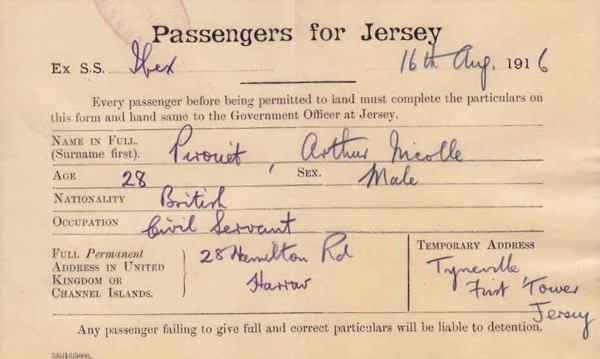 Passengers for Jersey
Ex S.S. Ibex 16th Aug. 1916
Every passenger before being permitted to land must complete the particulars on
this form and hand same to the Government Officer at Jersey.
NAME IN FULL. (Surname first). Pirouet, Arthur Nicolle
AGE 28 SEX. Male
NATIONALITY British
OCCUPATION Civil Servant
FULL Permanent ADDRESS IN UNITED KINGDOM OR CHANNEL ISLANDS.
28 Hamilton Rd
Harrow
TEMPORARY ADDRESS
Tyneville
First Tower
Jersey
Any passenger failing to give full and correct particulars will be liable to detention.